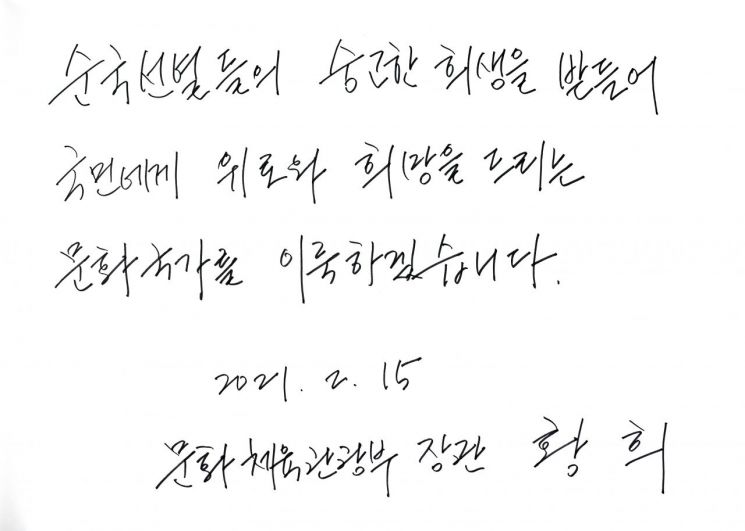 순국선별들의 숭고한 희생을 받들어
국민에게 위로와 희망을 드리는
문화국가를 이룩하겠습니다.
2021. 2. 15
문화체육관광부 장관 황 희